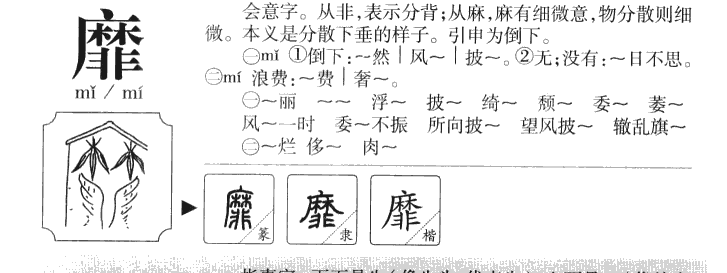 靡
mǐ / mí
会意字。从非,表示分背;从麻,麻有细微意,物分散则细
微。本义是分散下垂的样子。引申为倒下。
㊀mǐ ①倒下:～然｜风～｜披～。②无;没有:～日不思。
㊁mí 浪费:～费｜奢～。
㊀～丽 ～～ 浮～ 披～ 绮～ 颓～ 委～ 萎～
风～一时 委～不振 所向披～ 望风披～ 辙乱旗～
㊁～烂 侈～ 肉～
靡 篆 靡 隶 靡 楷